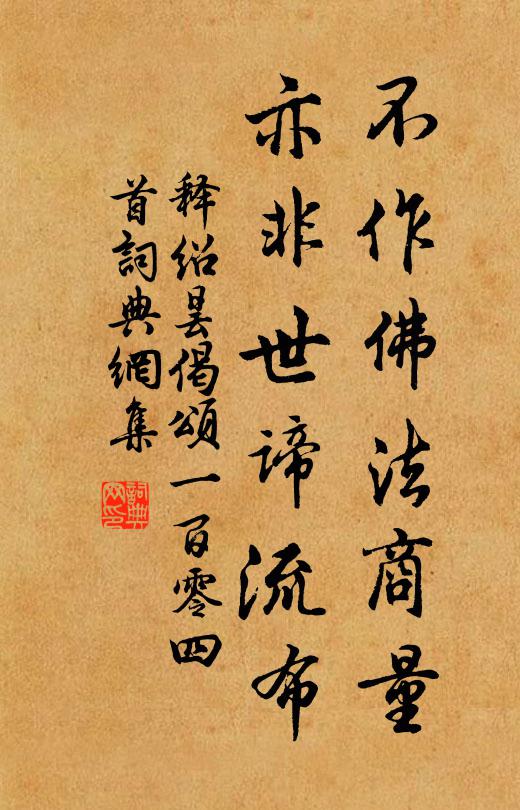 不作佛法商量
亦非世諦流布
释绍昙偈頌一百零四
首詞典網集
詞典網印